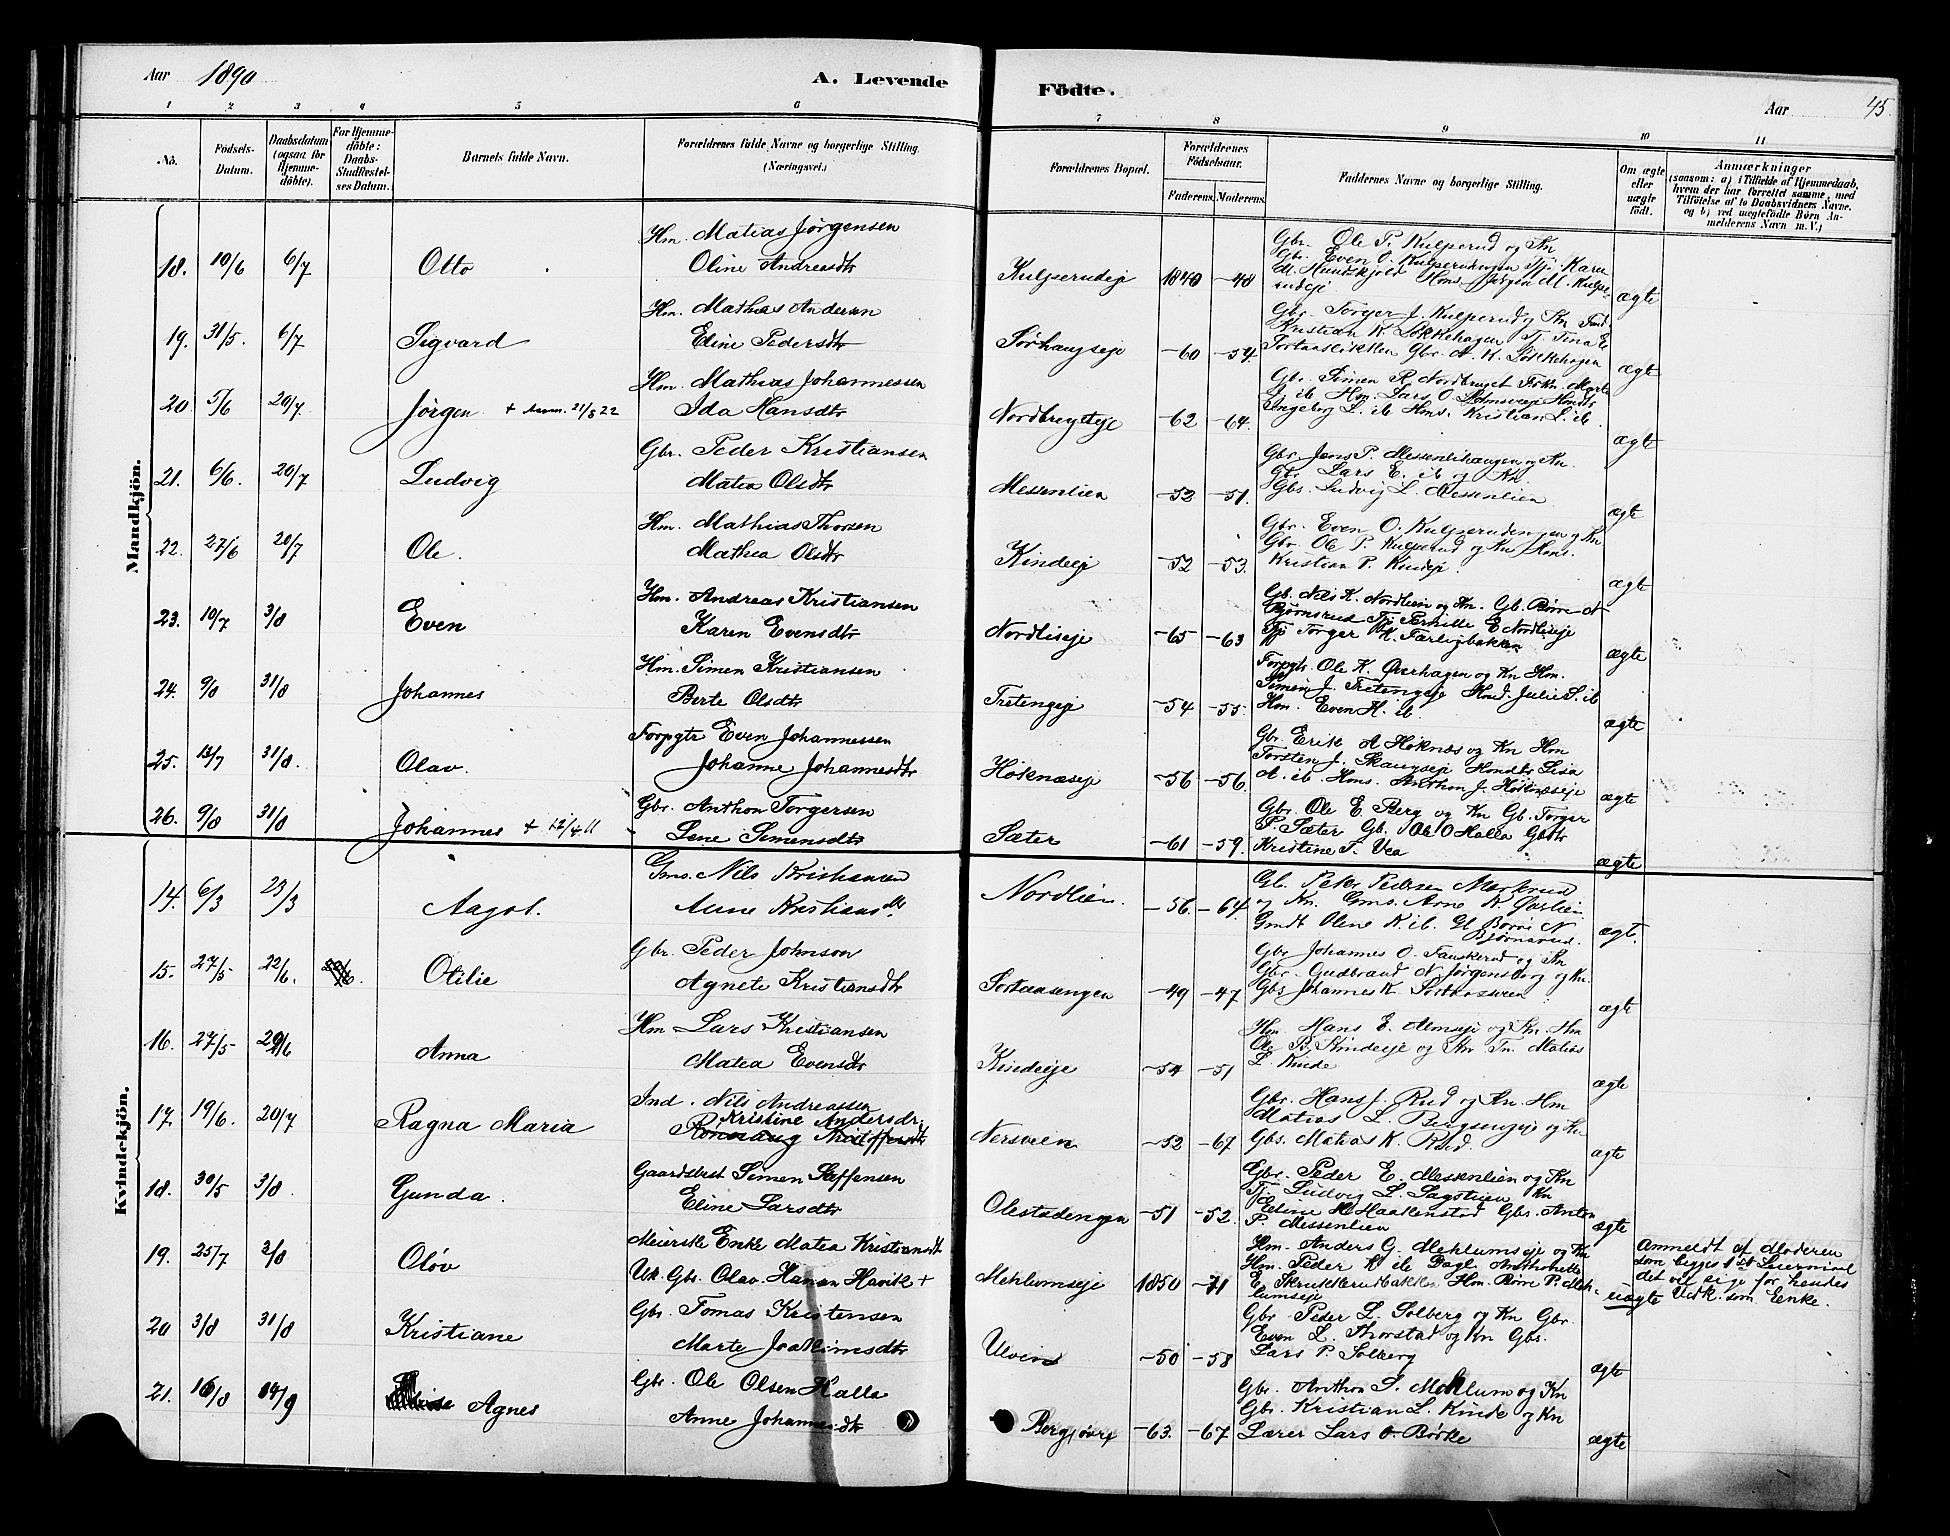 Aar 1890
A. Levende
Födte.
Aar
45
1 2 3 4 5 6 7 8 9 10 11
No.
Födsels-Datum.
Daabsdatum (ogsaa för Hjemme-döbte).
For Hjemme-döbte: Daabs-Stadfæstel-ses Datum.
Barnets fulde Navn.
Forældrenes fulde Navne og borgerlige Stilling. (Næringsvei.)
Forældrenes Bopæl.
Forældrenes Födselsaar.
Faderens. Moderens.
Faddernes Navne og borgerlige Stilling.
Om ægte eller uægte födt.
Anmærkninger
(saasom: a) i Tilfælde af Hjemmedaab,
hvem der har forrettet samme, med
Tilföielse af to Daabsvidners Navne.
og b) ved uægtefödte Börn An-
melderens Navn m. V.)
Mandkjön.
18. 10/6 6/7 Otto
Hm. Matias Jørgensen
Oline Andreasdtr
Kulperudeje 1840 -48
Gbr. Ole P. Kulperud og Kn
Gbr. Even O. Kulperudengen Tj. Karen
M. Hundskjold Hms. Jørgen M. Kulpe-
rudeje
ægte
19. 31/5. 6/7 Sigvard
Hm. Mathias Andersen
Eline Pedersdtr
Sørhaugseje -60 -54.
Gbr. Torger J. Kulperud og Kn
Kristian K. Løkkehagen Tj. Tina E
Gbr. A. K. Løkkehagen
ægte
20. 5/6 20/7. Jørgen + 21/8 22
Hm. Mathias Johannessen
Ida Hansdtr
Nordbrugteje -62 -64.
Gbr. Simen R. Nordbruget
ib Hm. Lars O.
Ingeborg L. ib Hms. Kristian L. ib.
ægte
21. 6/6. 20/7 Ludvig
Gbr. Peder Kristiansen
Matea Olsdtr
Messenlien -52 -51.
Gbr. Jens P. Messenlihaugen og Kn.
Gbr. Lars E. ib og Kn.
Gbs. Ludvig L. Messenlien
ægte
22. 27/6 20/7 Ole.
Hm. Mathias Thorsen
Mathea Olsdtr
Kindeje -52 -53.
Gbr. Even O. Kulperudengen og Kn
Gbr. Ole P. Kulperud og Kn Hms.
Kristian P. Kindeje.
ægte
23. 10/7 3/8 Even
Hm. Andreas Kristiansen
Karen Evensdtr
Nordlieje -65 -63
Gb. Nils K. Nordlien og Kn. Gb. Børre N
Bjørnsrud Tj. Pernille E Nordlieje
Tj Torger K. Færligbakken
ægte
24. 9/8 31/8 Johannes
Hm. Simen Kristiansen
Berte Olsdtr
Tretengeje -54 -55.
Forpgtr. Ole K. Øverhagen og Kn Hm.
Simen J. Tretengeje Hmd. Julie S. ib
Hm. Even H. ib.
ægte
25. 13/7 31/8. Olav.
Forpgtr Even Johannessen
Johanne Johannesdtr
Høknæseje -56 -56.
Gbr. Erik A Høknæs og Kn Hm
Torsten J. Skaugseje Hmdtr Lisa
A. ib. Hms. Anthon J. Høknæseje
ægte
26. 9/8 31/8 Johannes + 12/4 11
Gbr. Anthon Torgersen
Lene Simensdtr
Sæter -61 -59.
Gbr. Ole E. Berg og Kn Gb. Torger
P. Sæter Gb. Ole O Halla Gbdtr
Kristine T. Vea
ægte
Kvindekjön.
14. 6/3 23/3 Aagot.
Gms. Nils Kristiansen
Anne Kristiansdtr
Nordlien. -56. -64.
Gb. Peder Pedersen Mækrud
og Kn. Gms. Arne K Øverlien
Gmdt Oline K ib. Gb Børre N
Bjørnsrud.
ægt.
15. 27/5- 22/6. Otilie
Gbr. Peder Johnson
Agnete Kristiansdtr
Sortaasengen -49 -47
Gbr Johannes O. Fauskerud og Kn
Gbr. Gudbrand N Jørgensborg og Kn.
Gbs Johannes K. Sortaasveen
ægte
16. 27/5- 29/6 Anna
Hm Lars Kristiansen
Matea Evensdtr
Kindeje -54 -51
Hm. Hans E. Almseje og Kn Hm
Ole B. Kindeeje og Kn Tn. Matias
L. Kinde
ægte
17. 19/6. 20/7 Ragna Maria
Ind. Nils Andreassen
Kristine Andersdr.
Nersveen -52 -67
Gbr. Hans J. Rud og Kn. Hm
Matias L. Bergsengeje og Kn
Gbs. Matias K. Rud.
ægte
18. 30/5 3/8. Gunda.
Gaardsbest Simen Steffensen
Eline Larsdtr
Olestadengen -51 -52.
Gbr. Peder E. Messenlien og Kn
Tj. Ludvig L. Sagstuen Kn
Eline H Haakenstad Gbs. Anton
P. Messenlien
ægte
19. 25/7 3/8 Oløv
Meierske Enke Matea Kristiansdt
Uk. Gbr. Olav Hansen Havik +
Mehlumseje 1850 -71
Hm. Anders G. Mehlumseje og Kn
Hm. Peder K ib Dagl. Anthonette
E. Skrukkerudbakken Hm. Børre P. Meh-
lumseje
uægte
Anmeldt af Moderen
som begges 1st Leiermaal
det vil sige for hendes
Vedk. som Enke.
20 3/8 31/8 Kristiane
Gbr. Tomas Kristensen
Marte Joakimsdtr
Ulven -50 -58
Gbr Peder L. Solberg og Kn Gbr.
Even L. Thorstad og Kn Gbs.
Lars P. Solberg
ægte
21. 16/8 14/9 Agnes
Gbr. Ole Olsen Halla
Anne Johannesdtr
Berg, øvre -63. -67
Gbr. Anthon S. Mehlum og Kn
Gbr. Kristian L. Kinde og Kn
Lærer Lars O. Börke
ægte